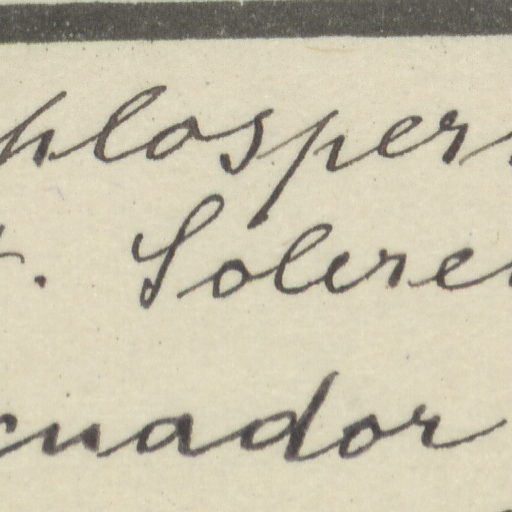 hlosper
. Solere
cuador